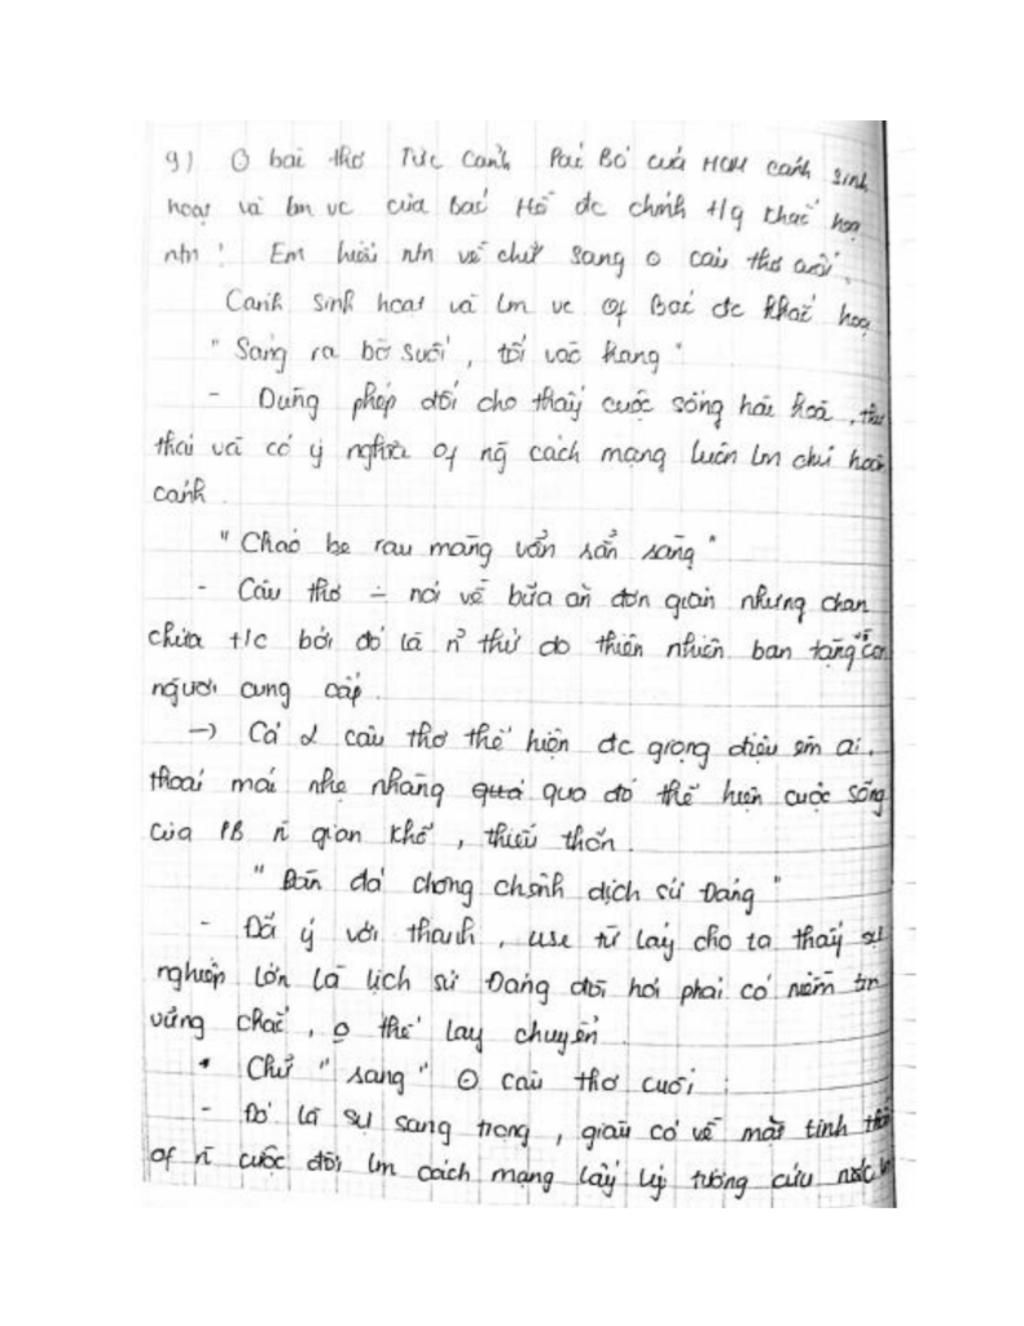 9) Ở bài thơ Tức Cảnh Pác Bó của HCM cảnh sinh
hoạt và lm vc của Bác Hồ đc chính t/g khắc hoạ
ntn ! Em hiểu ntn về chữ sang ở câu thơ cuối.
Cảnh sinh hoạt và lm vc of Bác đc khắc hoạ
" Sáng ra bờ suối , tối vào hang "
- Dùng phép đối cho thấy cuộc sống hài hoà , thư
thái và có ý nghĩa of ng cách mạng luôn lm chủ hoàn
cảnh .
" Cháo bẹ rau măng vẫn sẵn sàng "
- Câu thơ ÷ nói về bữa ăn đơn giản nhưng chan
chứa t/c bởi đó là n~ thứ do thiên nhiên ban tặng con
người cung cấp .
-> Cả 2 câu thơ thể hiện đc giọng điệu êm ái ,
thoải mái nhẹ nhàng quá qua đó thể hiện cuộc sống
của PB n~ gian khổ , thiếu thốn .
" Bàn đá chông chênh dịch sử Đảng "
- Đối ý với thanh , use từ láy cho ta thấy sự
nghiệp lớn là lịch sử Đảng đòi hỏi phải có niềm tin
vững chắc , o thể lay chuyển .
• Chữ " sang " ở câu thơ cuối :
- Đó là sự sang trọng , giàu có về mặt tinh thần
of n~ cuộc đời lm cách mạng lấy lý tưởng cứu nước